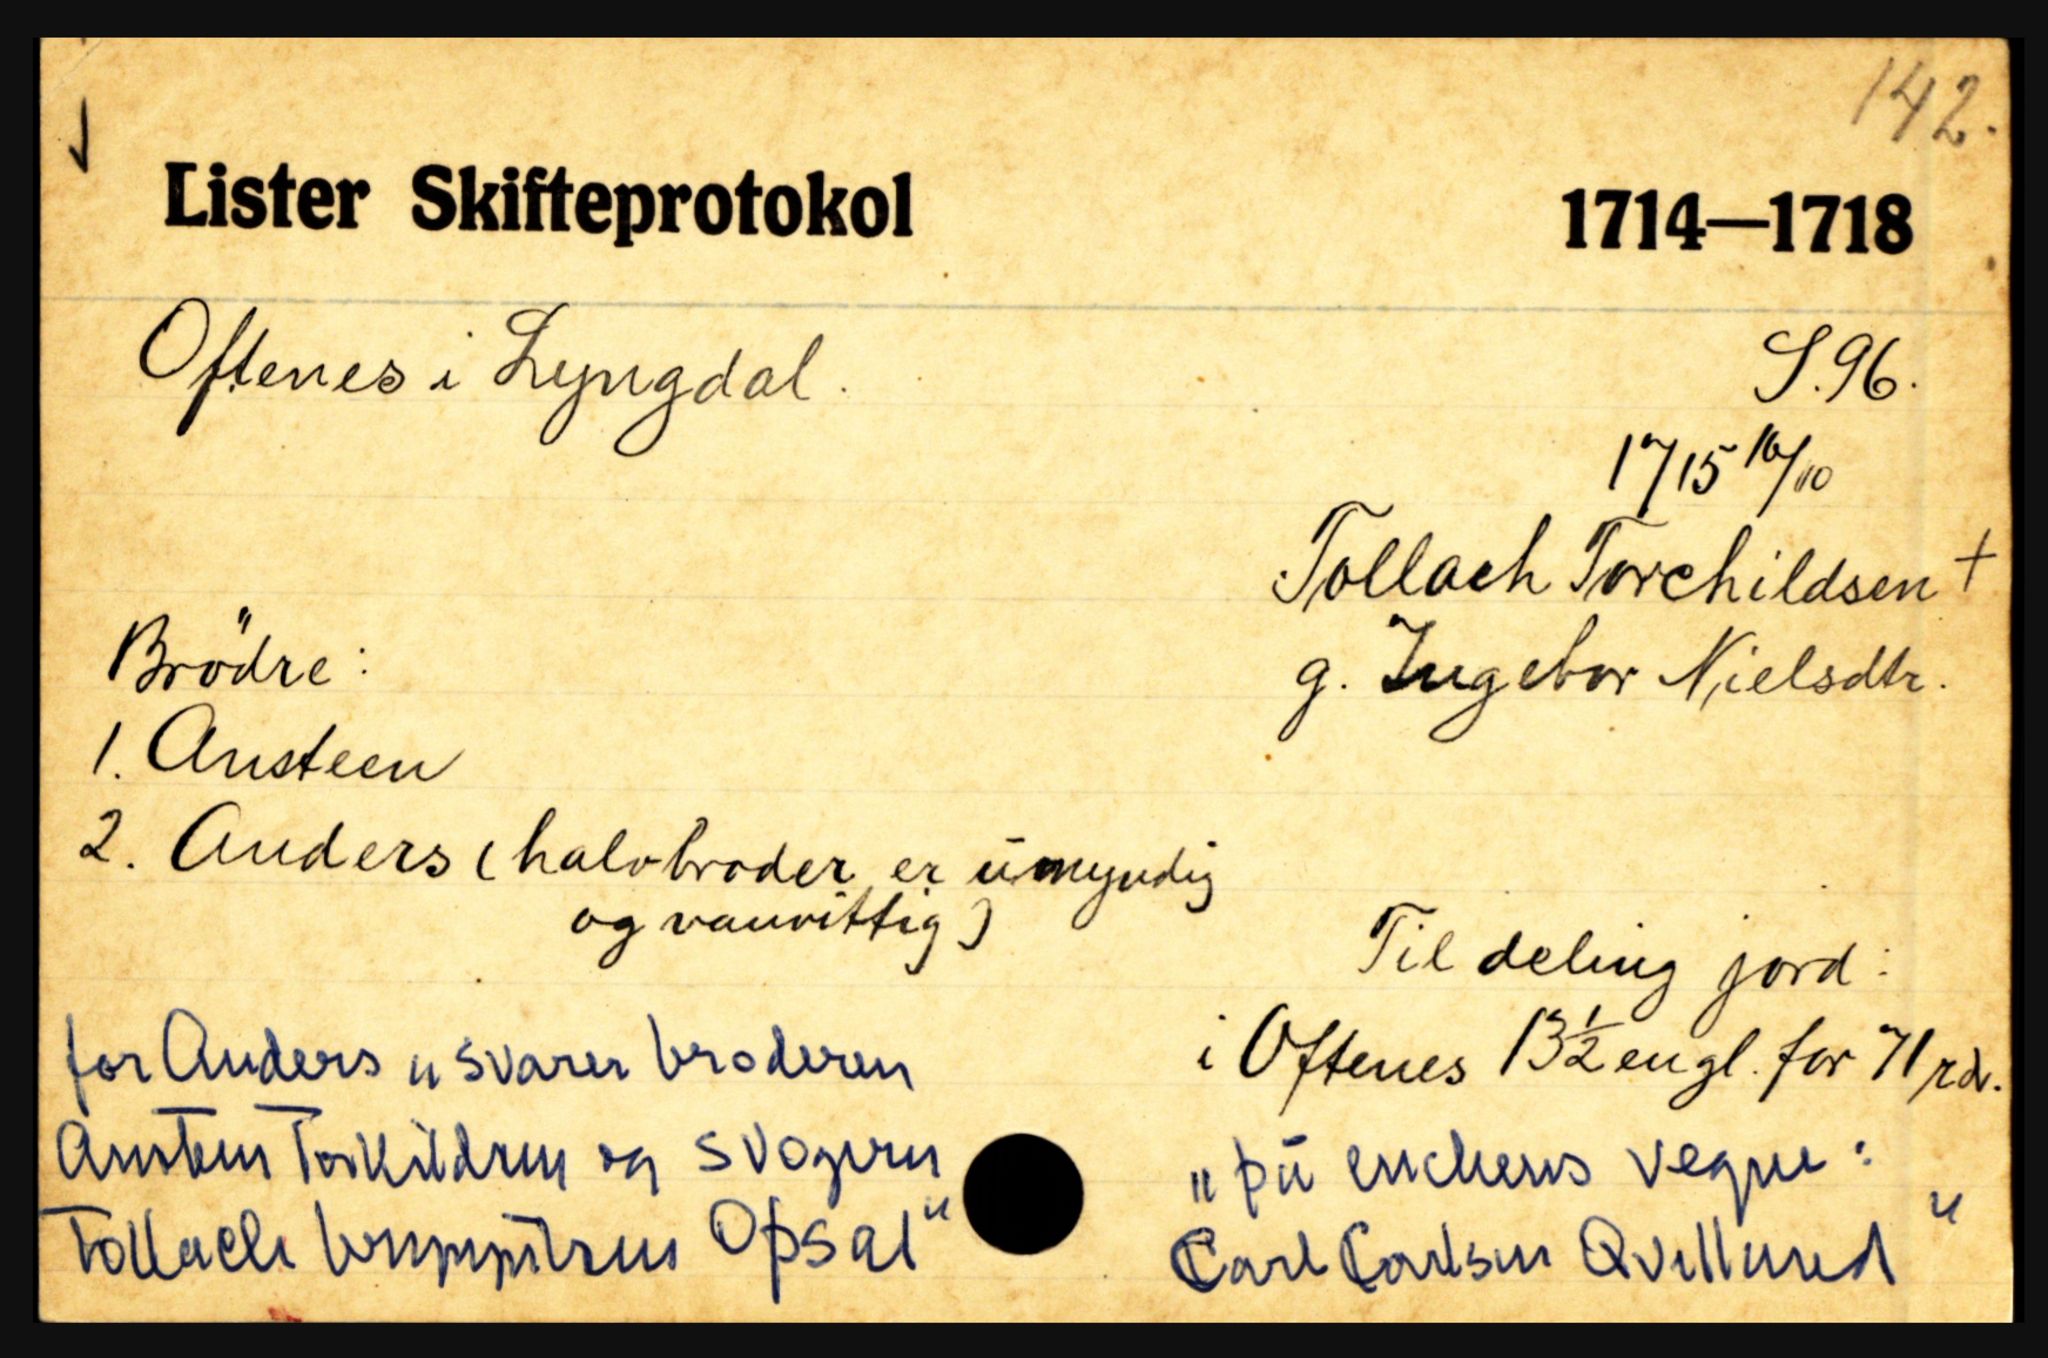 142.
Lister Skifteprotokol 1714—1718
Oftenes i Lyngdal. S. 96.
1715 16/10
Tollach Torchildsen +
g. Ingebor Nielsdtr.
Brödre:
1. Ansteen
2. Anders (halvbroder er umyndig
og vanvittig)
Til deling jord:
i Oftenes 13 1/2 engl. for 71 rdr.
for Anders "svarer broderen
Ansten Torkildsen og svogern
Tollach Opsal"
"på enchens vegne:
Carl Carlsen Qvillund"